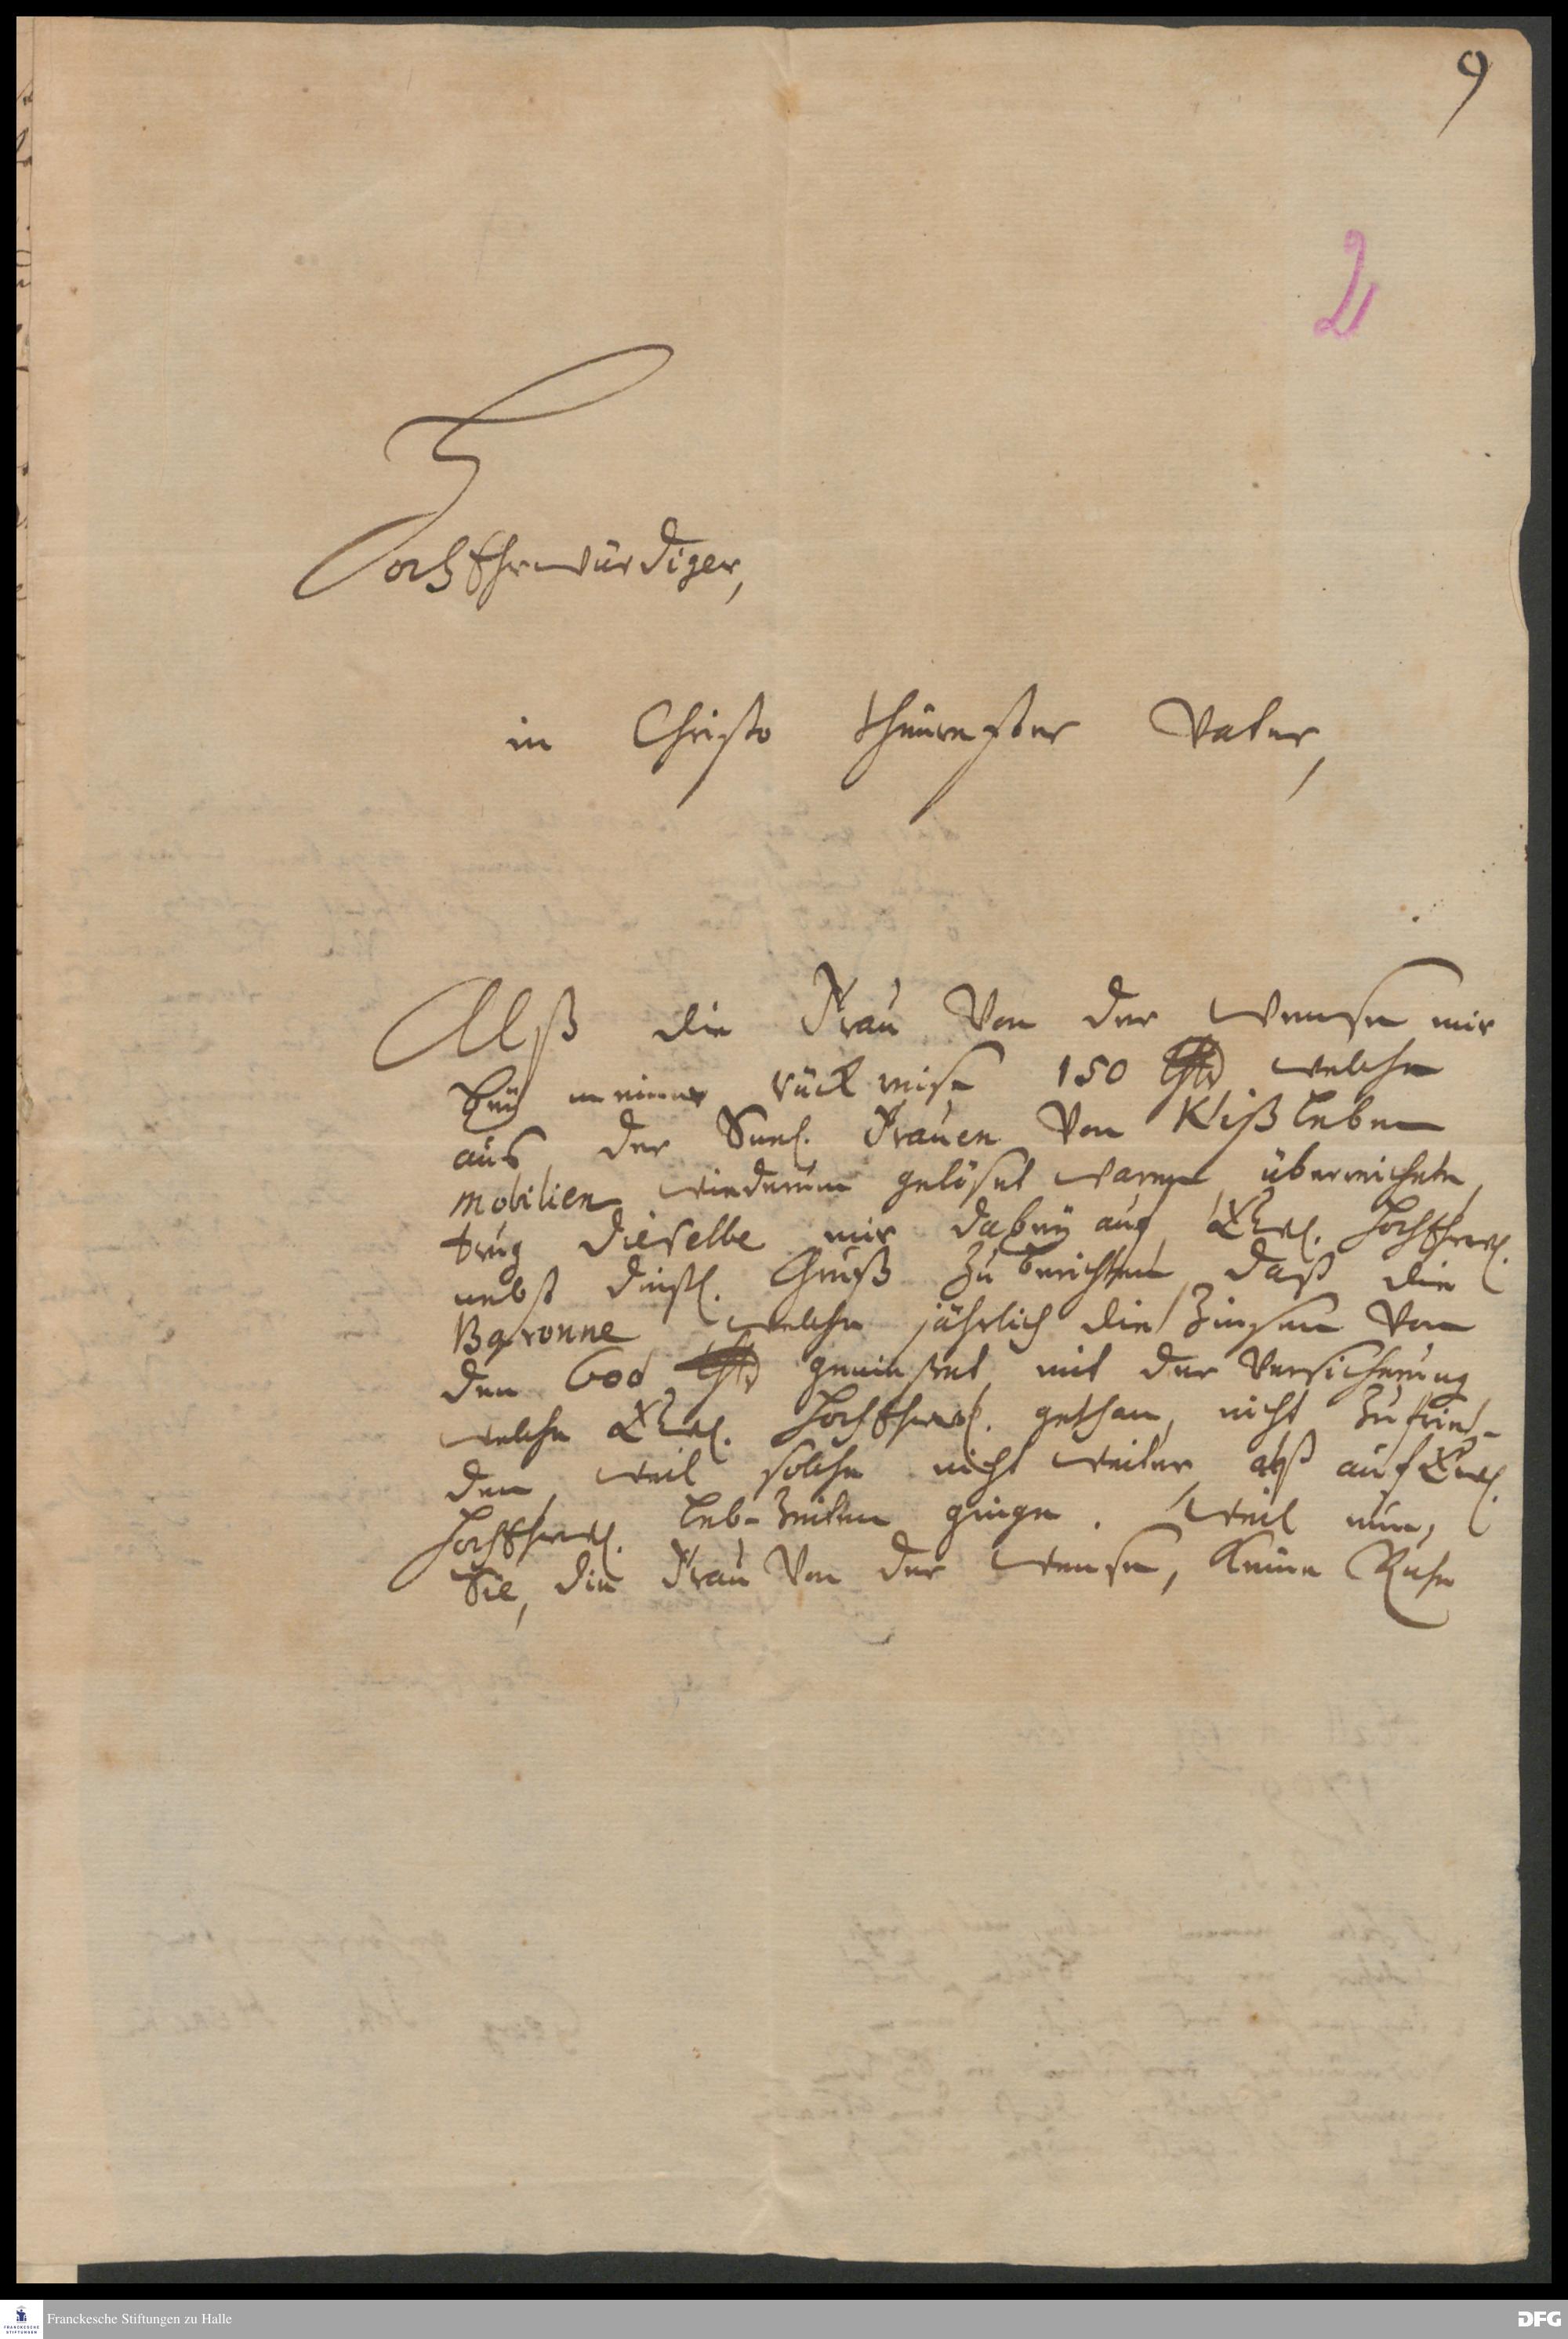 9
2
HochEhrwürdiger,
in Christo theürester Vater,
Alß die Frau Von der Wense mir
bey meiner rückreise 150 Thlr welche
aus der Seel. Frauen Von Kißleben
mobilien wiederum gelöset waren, überreichete,
trug dieselbe mir dabey auf, Ew. HochEhrw.
nebst dienstl. Gruß zu berichten, daß die
Baronne welche jährlich die Zinsen Von
den 600 Thlr genießet, mit der Versicherung
welche Ew. HochEhrw. gethan, nicht zufrie-
den, weil solche nicht weiter alß auf Ew.
HochEhrw. leb-Zeiten ginge. Weil nun,
Sie, die Frau Von der Wense, keine Ruhe
Franckesche Stiftungen zu Halle
DFG